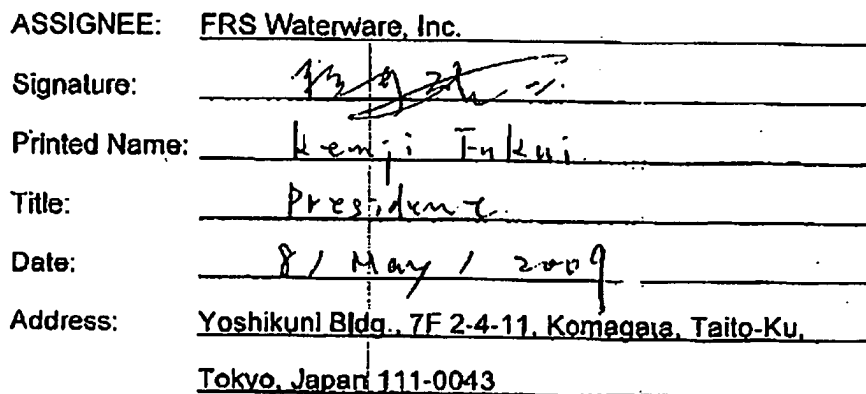 ASSIGNEE: FRS Waterware, Inc.
Signature:
Printed Name: Kenji Fukui
Title: Presidene
Date: 8 / May / 2009
Address: Yoshikuni Bldg., 7F 2-4-11, Komagata, Taito-Ku,
Tokyo, Japan 111-0043